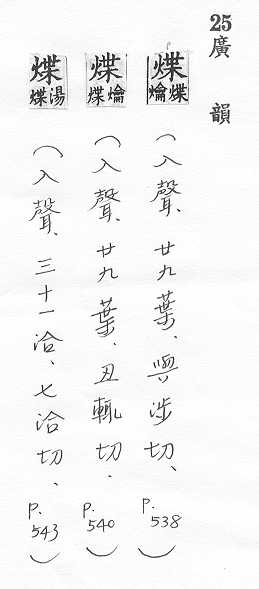 25 廣韻
煠 煠爚 (入聲、廿九葉、與涉切、P.538)
煠 爚煠 (入聲、廿九葉、丑輒切、P.540)
煠 湯煠 (入聲、三十一洽、七洽切、P.543)